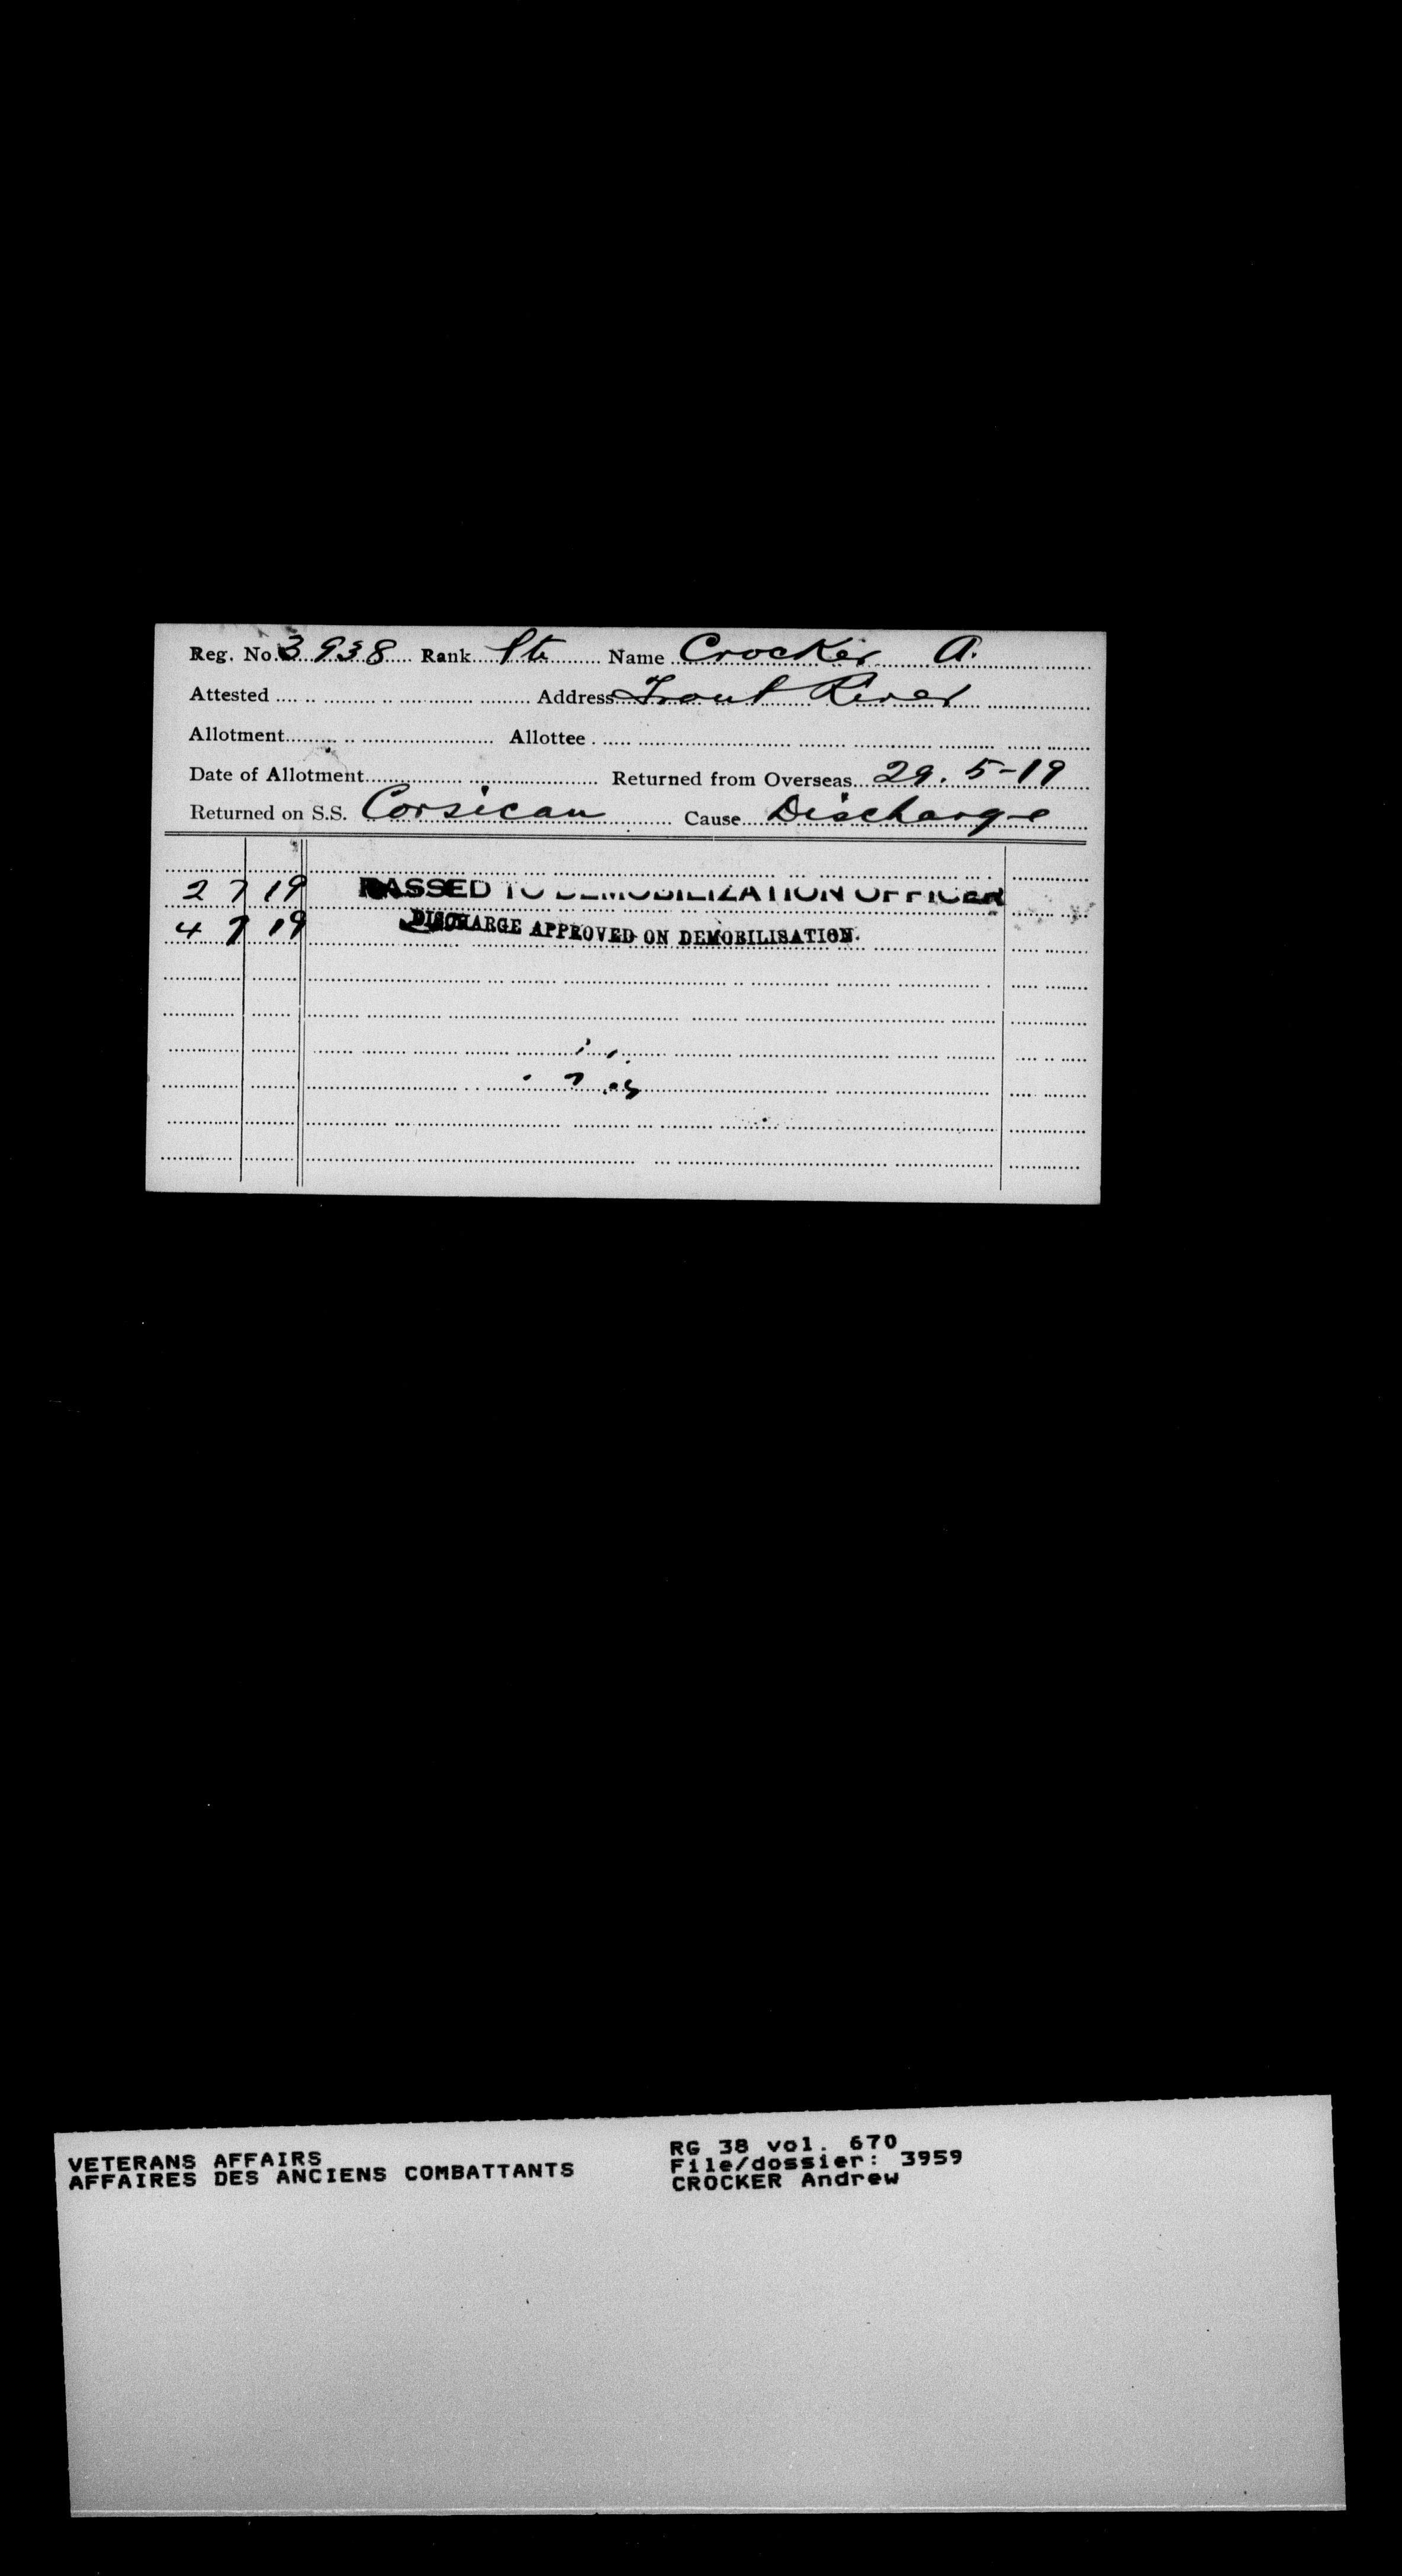 Reg. No. 3938 Rank Pte Name Crocker A.
Attested Address Trout River
Allotment Allottee
Date of Allotment Returned from Overseas 29.5-19
Returned on S.S. Corsican Cause Discharge
2 7 19 PASSED TO DEMOBILIZATION OFFICER
4 7 19 DISCHARGE APPROVED ON DEMOBILISATION.
VETERANS AFFAIRS
AFFAIRES DES ANCIENS COMBATTANTS
RG 38 vol. 670
File/dossier: 3959
CROCKER Andrew